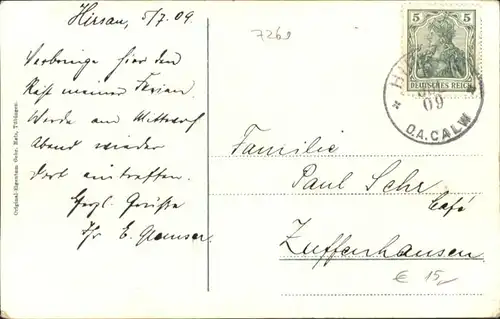 Hirsau, 5/7.09.
7269
Verbringe hier den
Rest meiner Ferien.
Werde am Mittwoch
Abend wieder
dort eintreffen.
Herzl. Grüße
Original-Eigentum Gebr. Metz, Tübingen.
5 5
DEUTSCHES REICH
09
O.A.CALW
Familie
Paul Sehr
Café
Zuffenhausen
€ 15,-